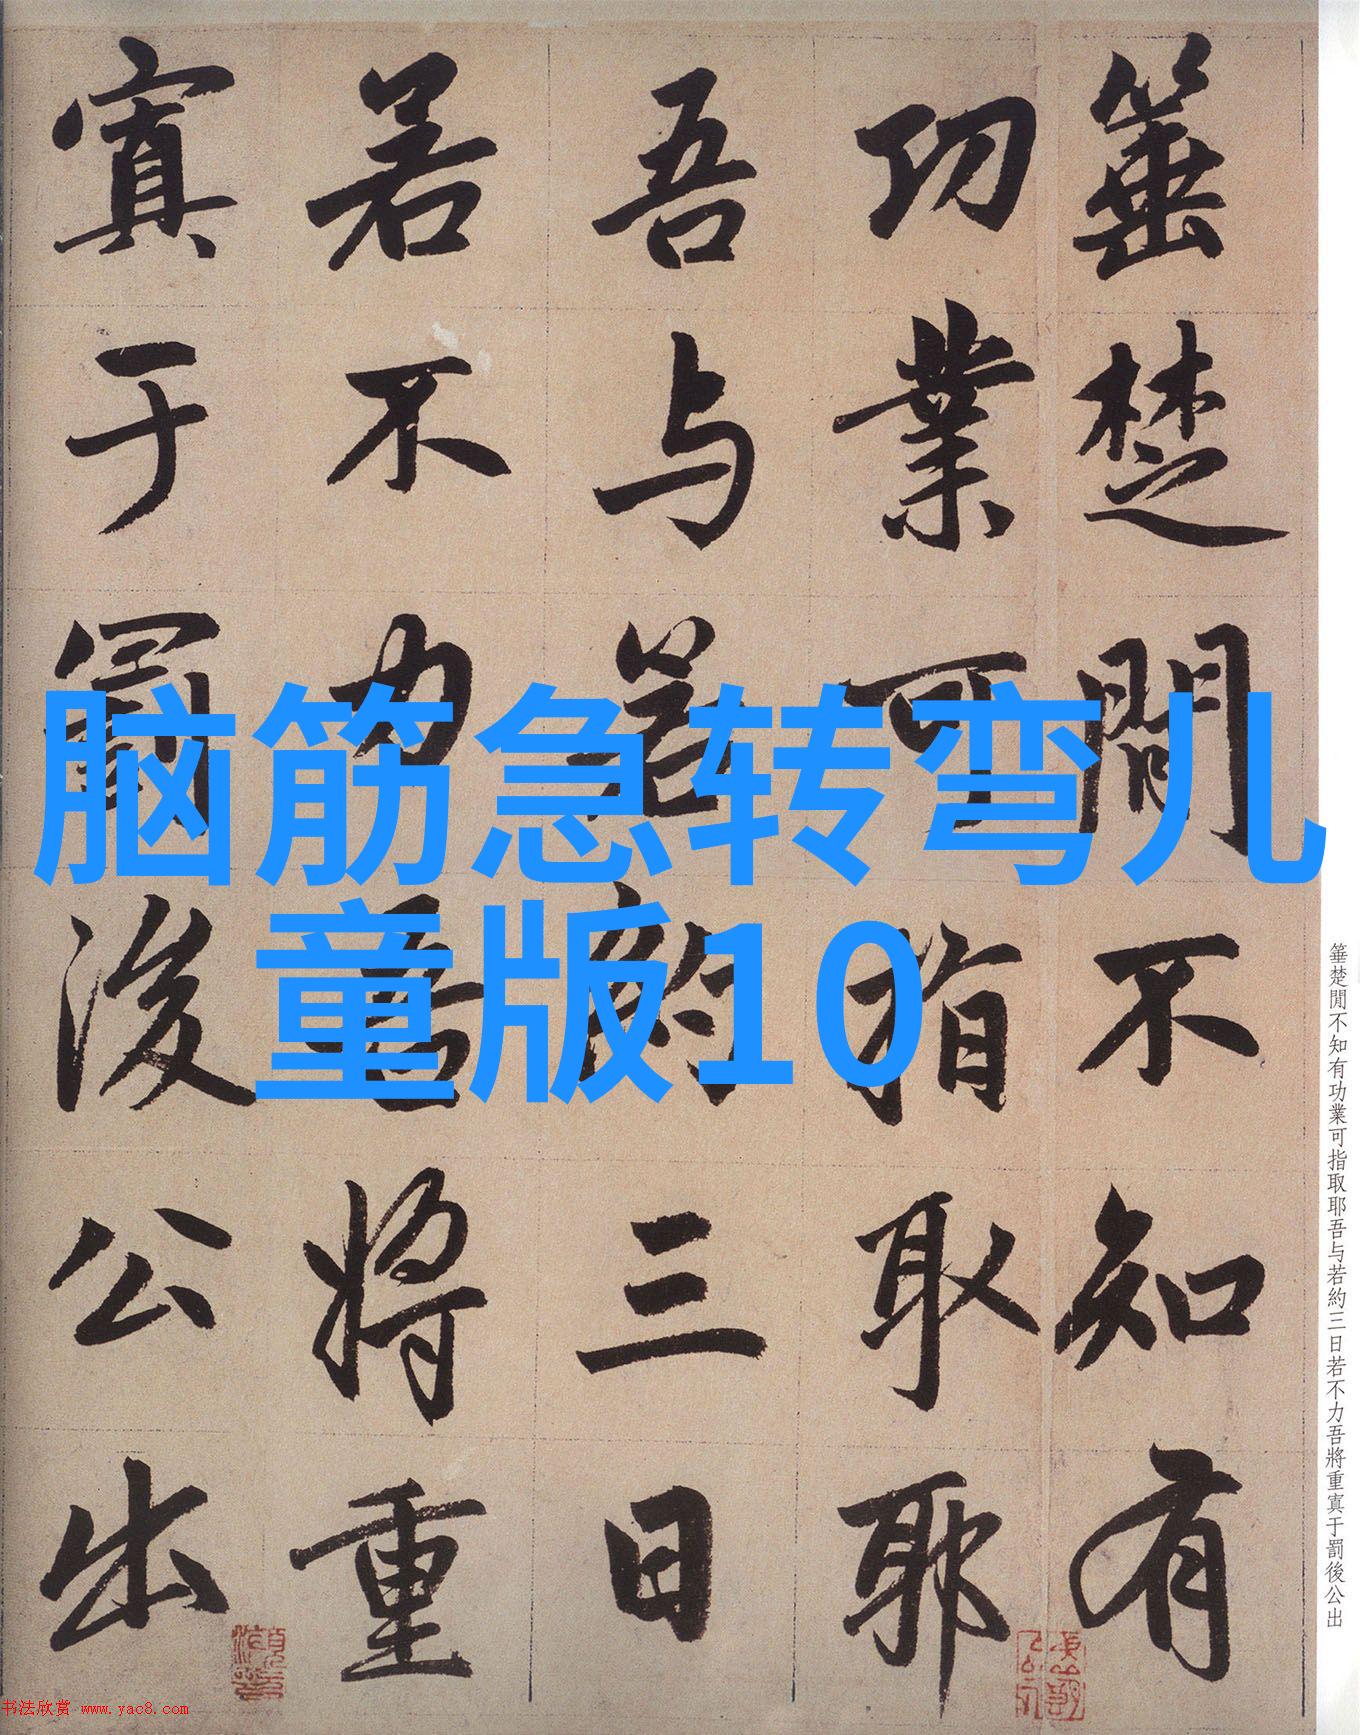 箠楚間不知有
功業可指取耶
吾与若約三日
若不力吾將重
寘于罰後公出
脑筋急转弯儿
童版10
箠楚間不知有功業可指取耶吾与若約三日若不力吾將重寘于罰後公出
书法欣赏 www.yac8.com